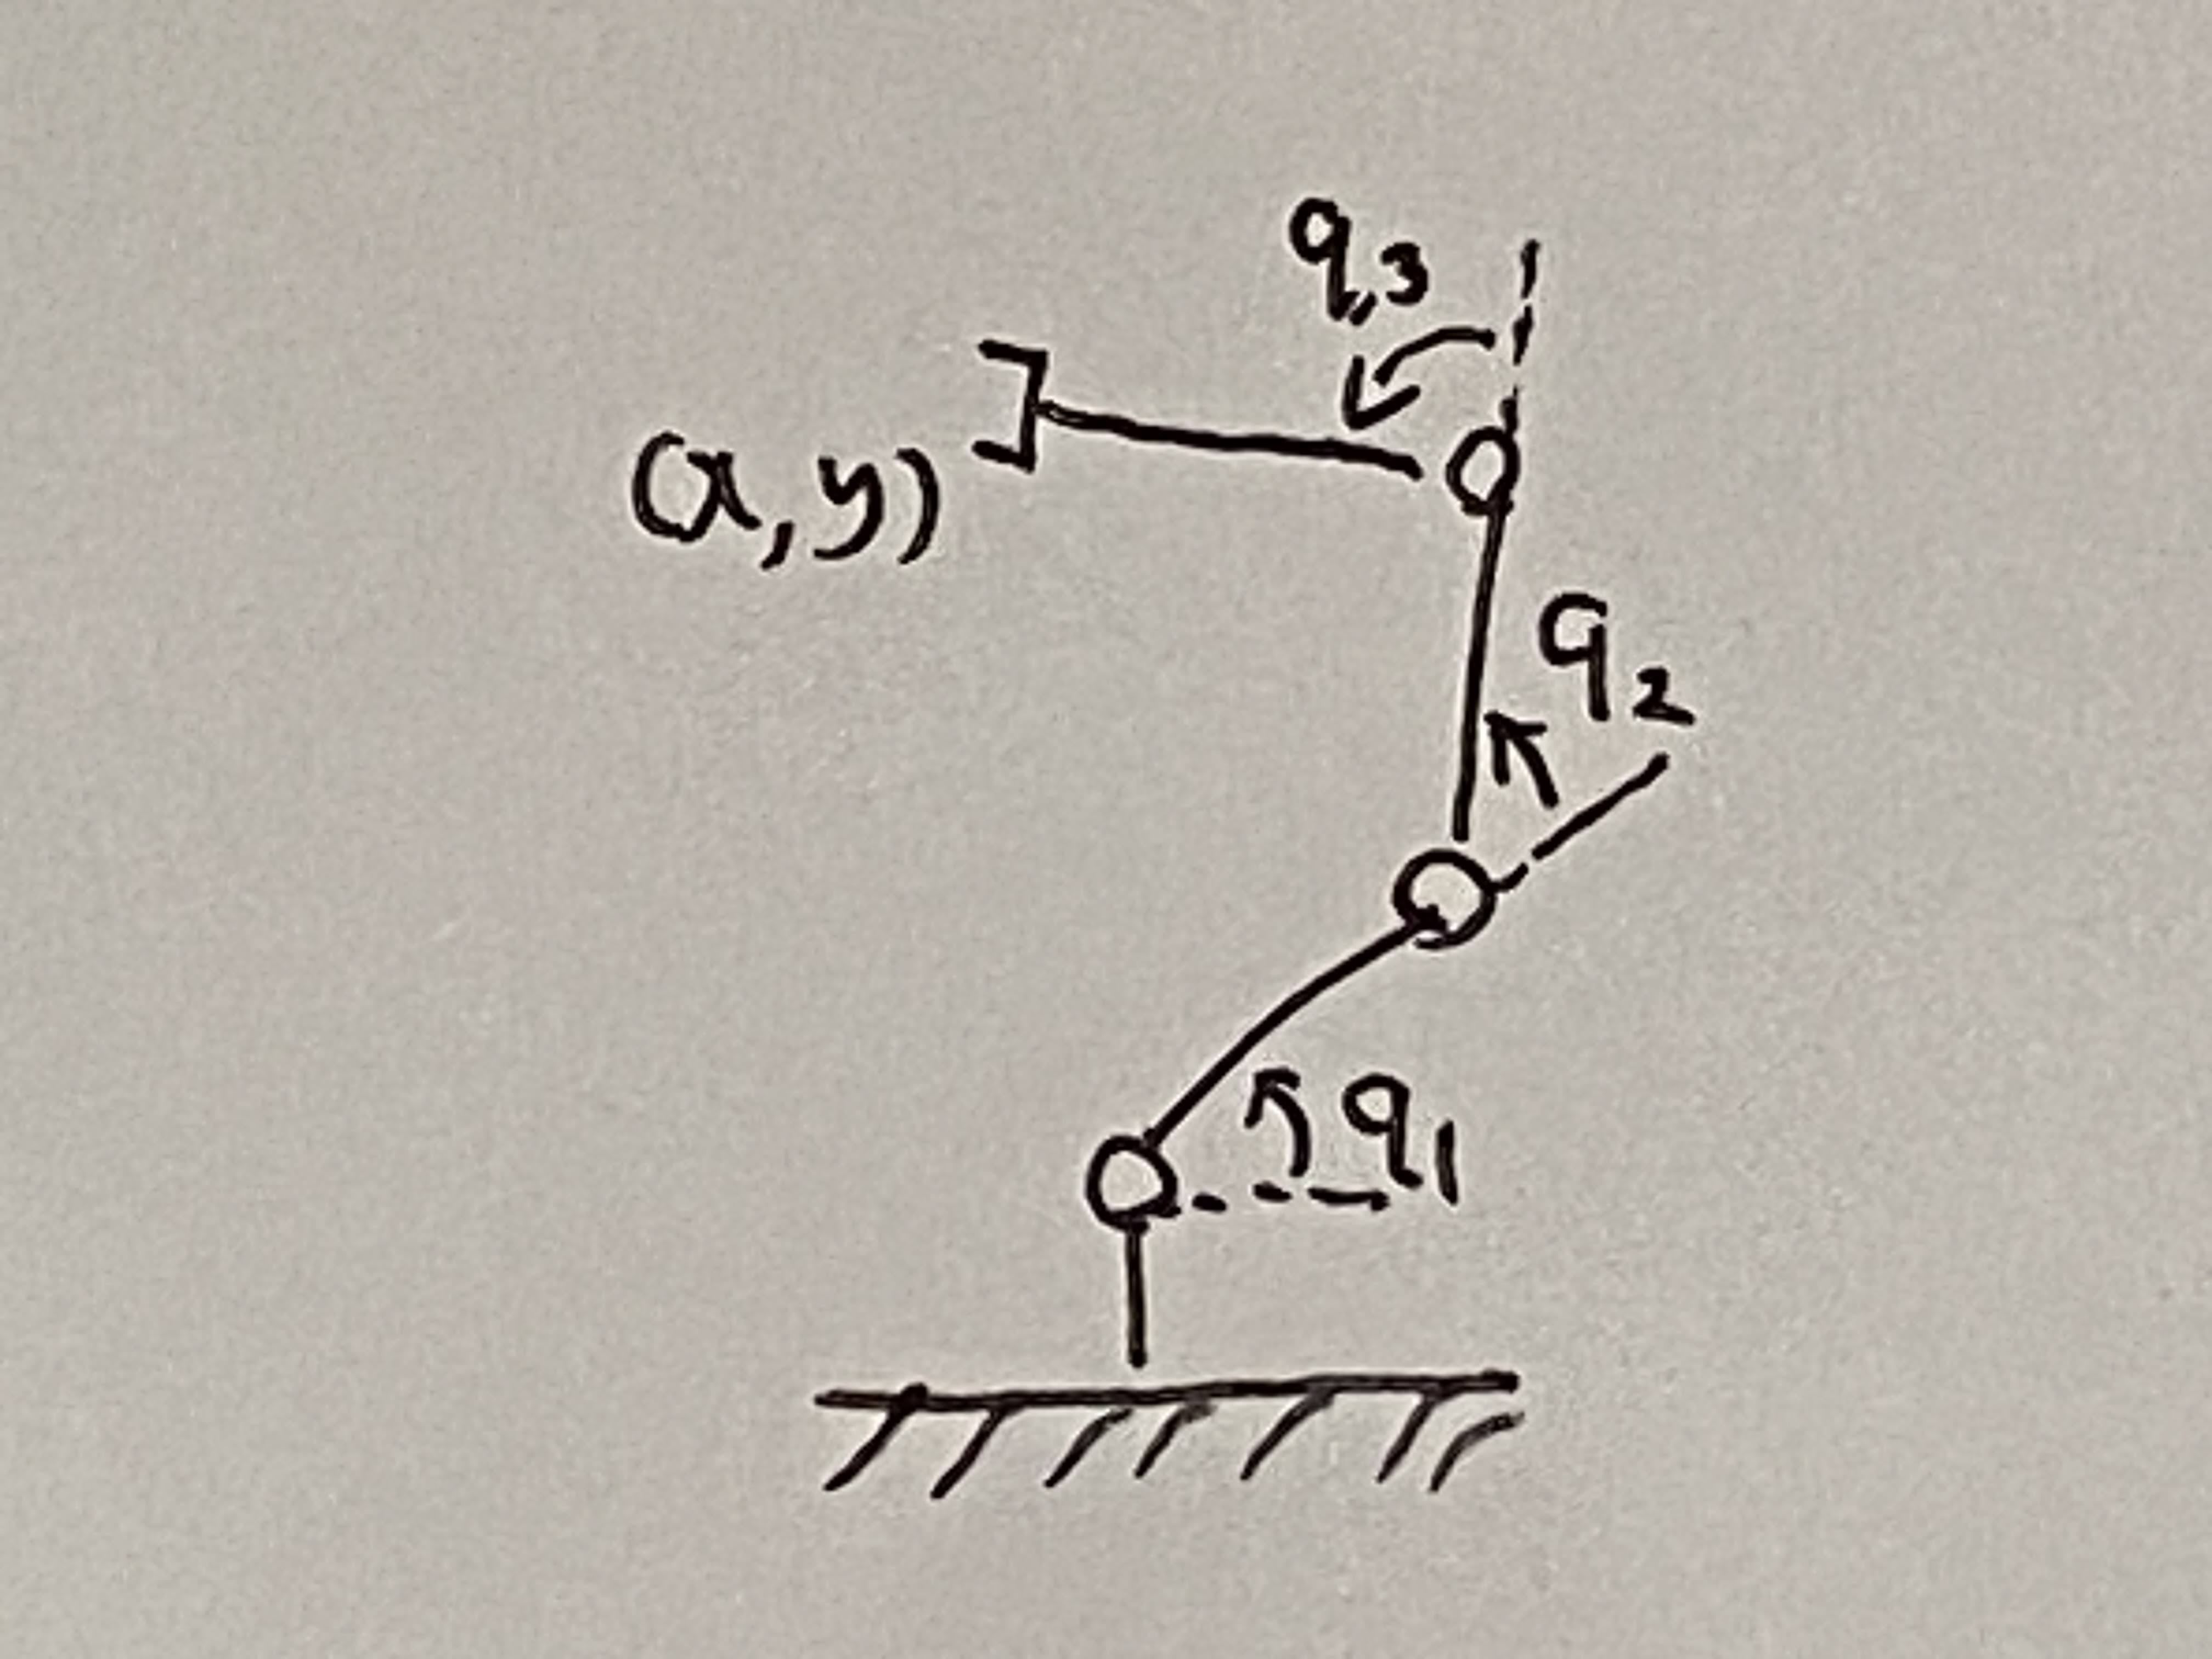 q,3
(x,y)
q2
q1